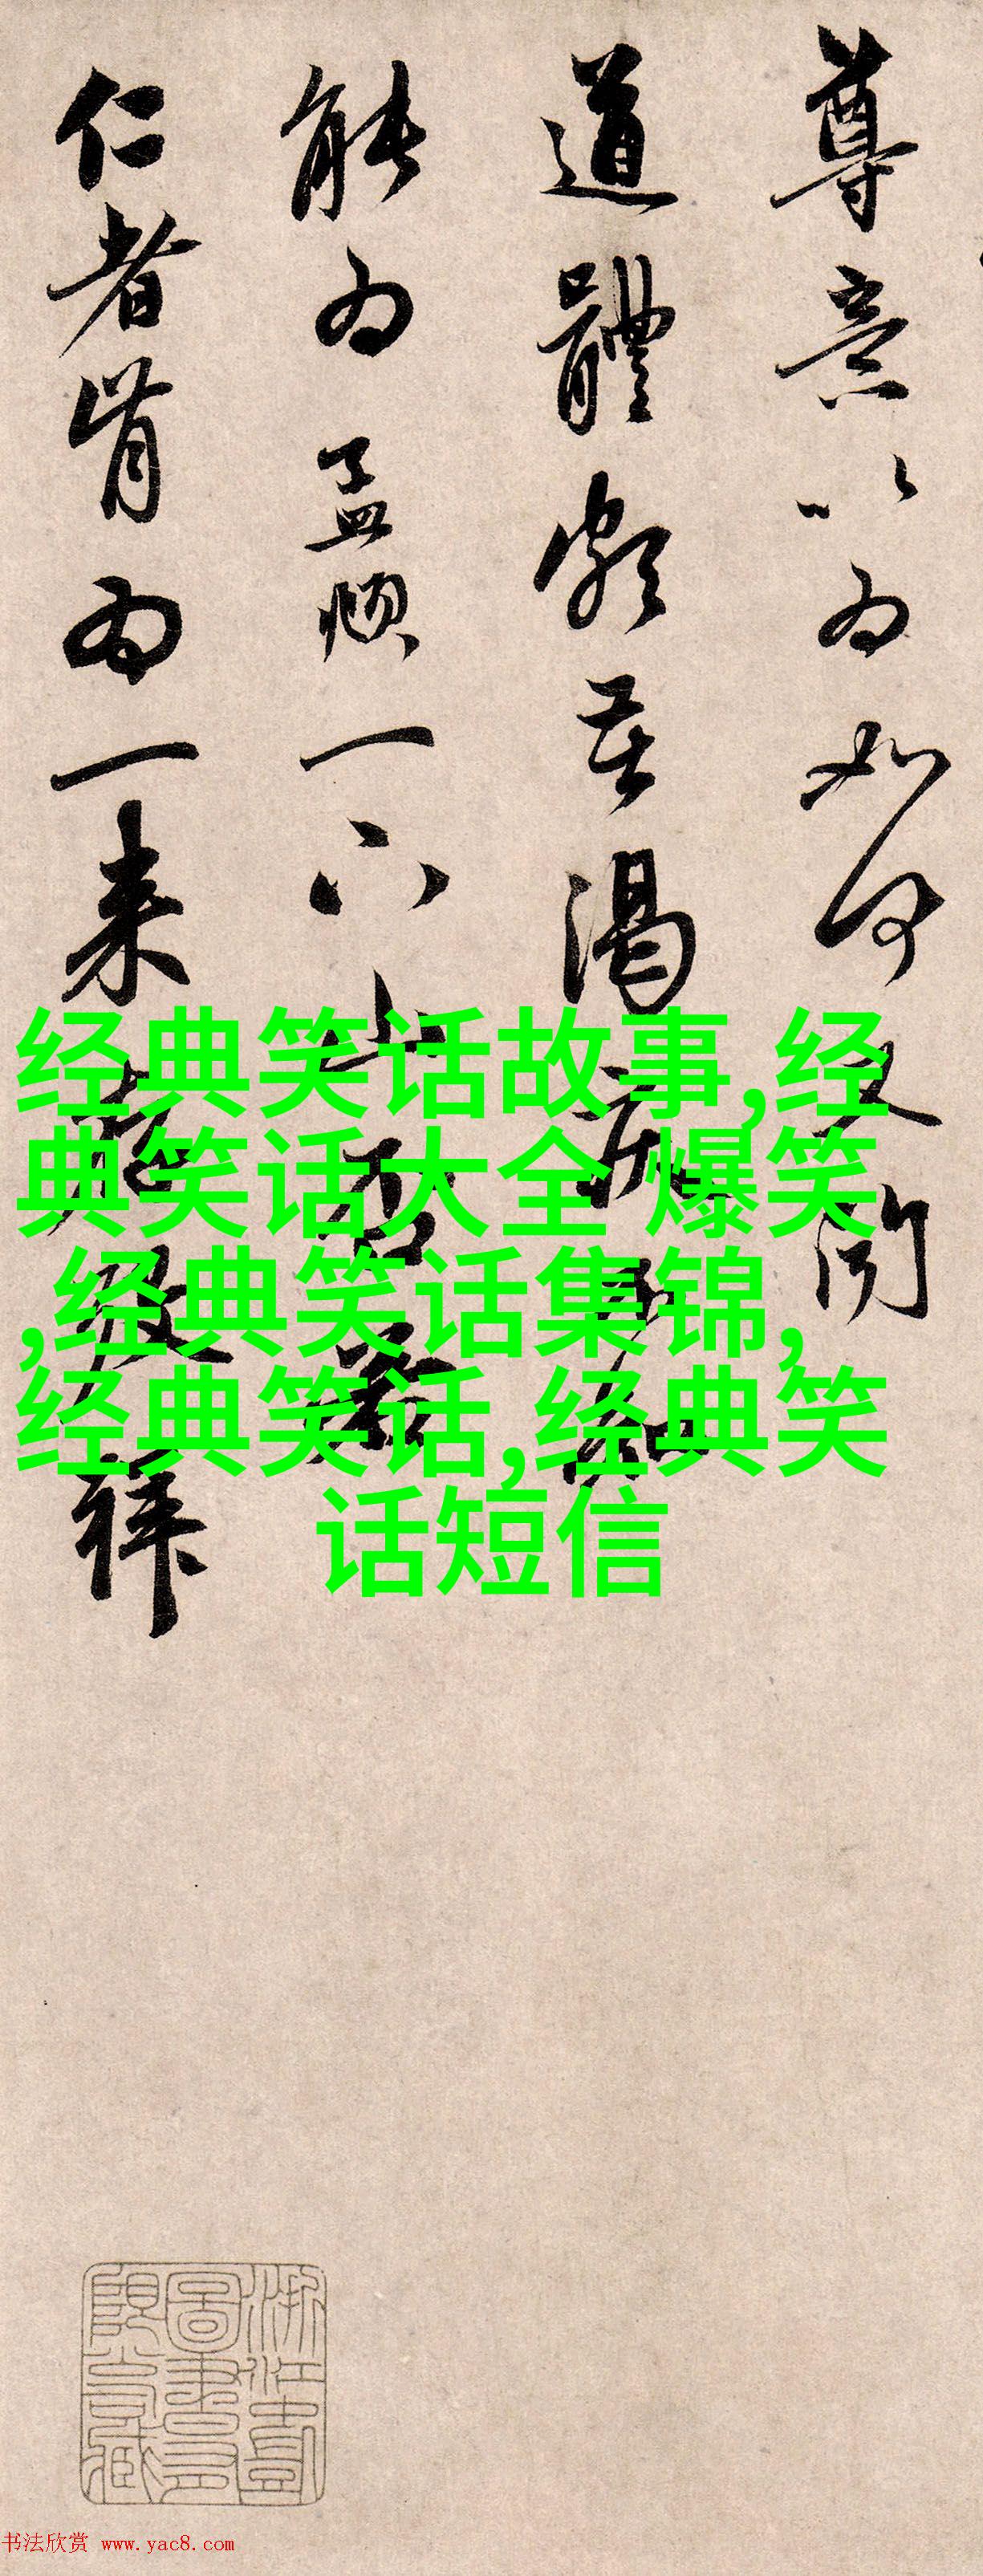 尊意以为如何又闻
道體頗苦渴疾
能为孟頫一下山否
仁者肯为一来拜
经典笑话故事,经
典笑话大全 爆笑
,经典笑话集锦,
经典笑话,经典笑
话短信
书法欣赏 www.yac8.com